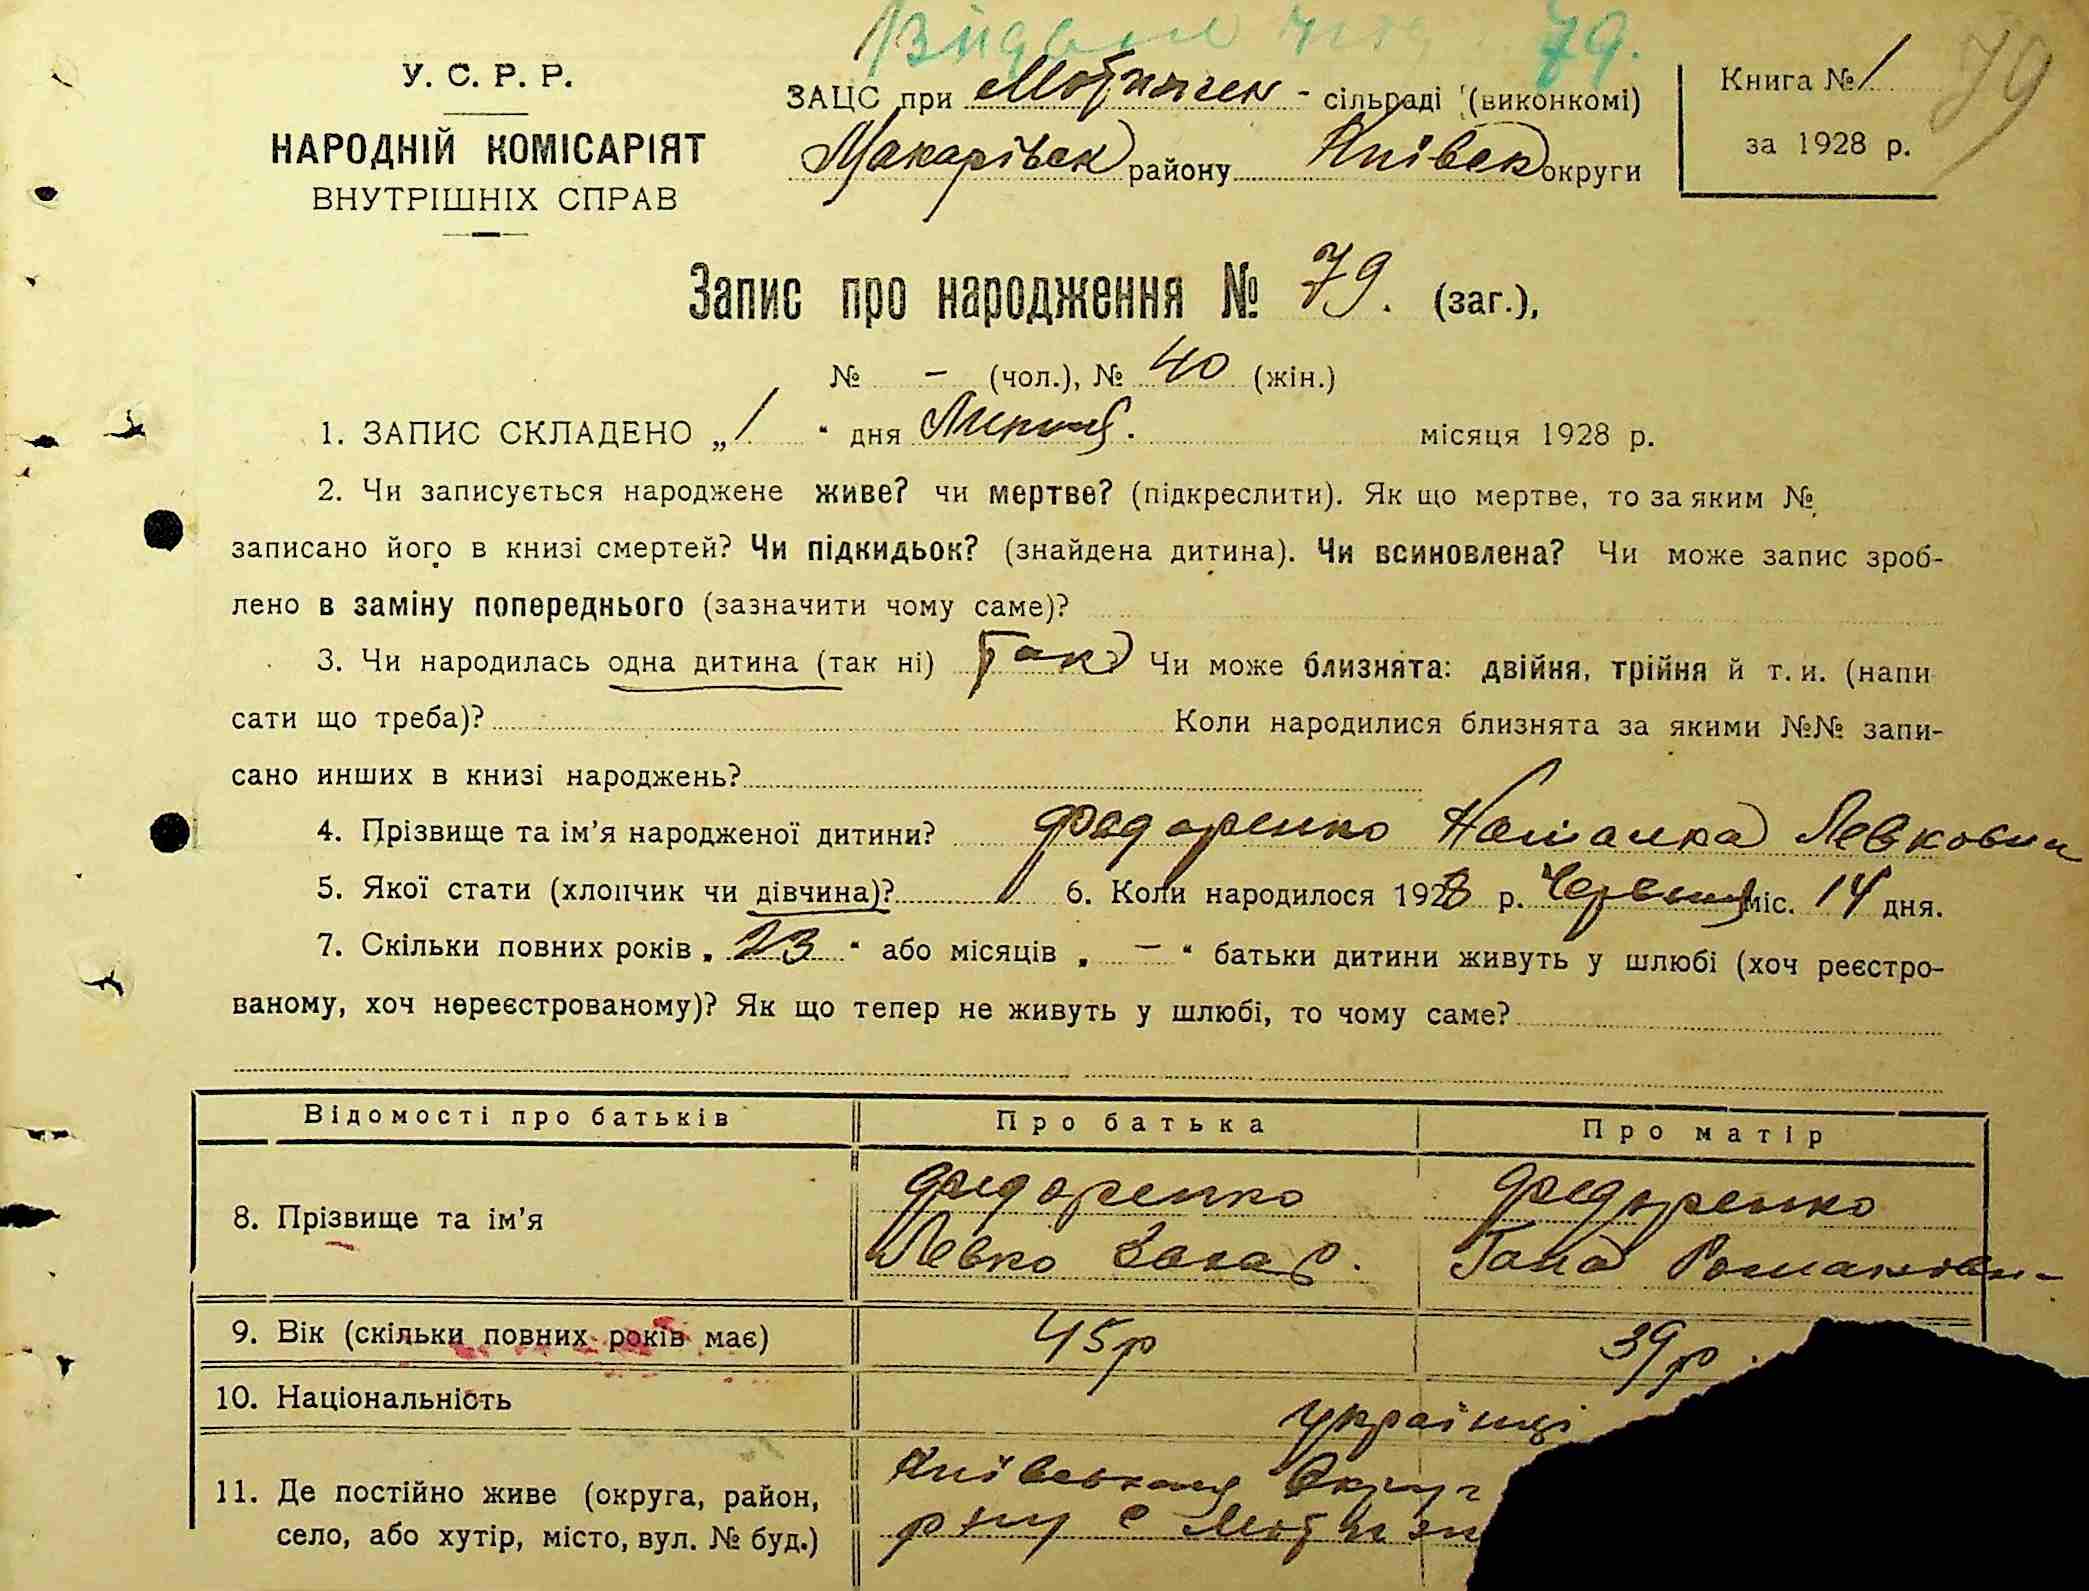 Видано 79.
79
У. С. Р. Р.
НАРОДНІЙ КОМІСАРІЯТ
ВНУТРІШНІХ СПРАВ
ЗАЦС при Мотижен - сільраді (виконкомі)
Макарівськ району Київськ округи
Книга № 1
за 1928 р.
Запис про народження № 79. (заг.),
№ - (чол.), № 40 (жін.)
1. ЗАПИС СКЛАДЕНО „1“ дня Липня. місяця 1928 р.
2. Чи записується народжене живе? чи мертве? (підкреслити). Як що мертве, то за яким №
записано його в книзі смертей? Чи підкидьок? (знайдена дитина). Чи всиновлена? Чи може запис зроб-
лено в заміну попереднього (зазначити чому саме)?
3. Чи народилась одна дитина (так ні) Так Чи може близнята: двійня, трійня й т. и. (напи
сати що треба)? Коли народилися близнята за якими №№ запи-
сано инших в книзі народжень?
4. Прізвище та ім'я народженої дитини? Федоренко Наталка Левковна
5. Якої стати (хлопчик чи дівчина)? 6. Коли народилося 1928 р. Червня міс. 14 дня.
7. Скільки повних років „23“ або місяців „—“ батьки дитини живуть у шлюбі (хоч реєстро-
ваному, хоч нереєстрованому)? Як що тепер не живуть у шлюбі, то чому саме?
Відомості про батьків Про батька Про матір
8. Прізвище та ім'я
Федоренко
Левко Захар.
Федоренко
Гана Романовн-
9. Вік (скільки повних років має) 45р 39р.
10. Національність українці
11. Де постійно живе (округа, район,
село, або хутір, місто, вул. № буд.)
Київської Округ
р ну с Мотижи